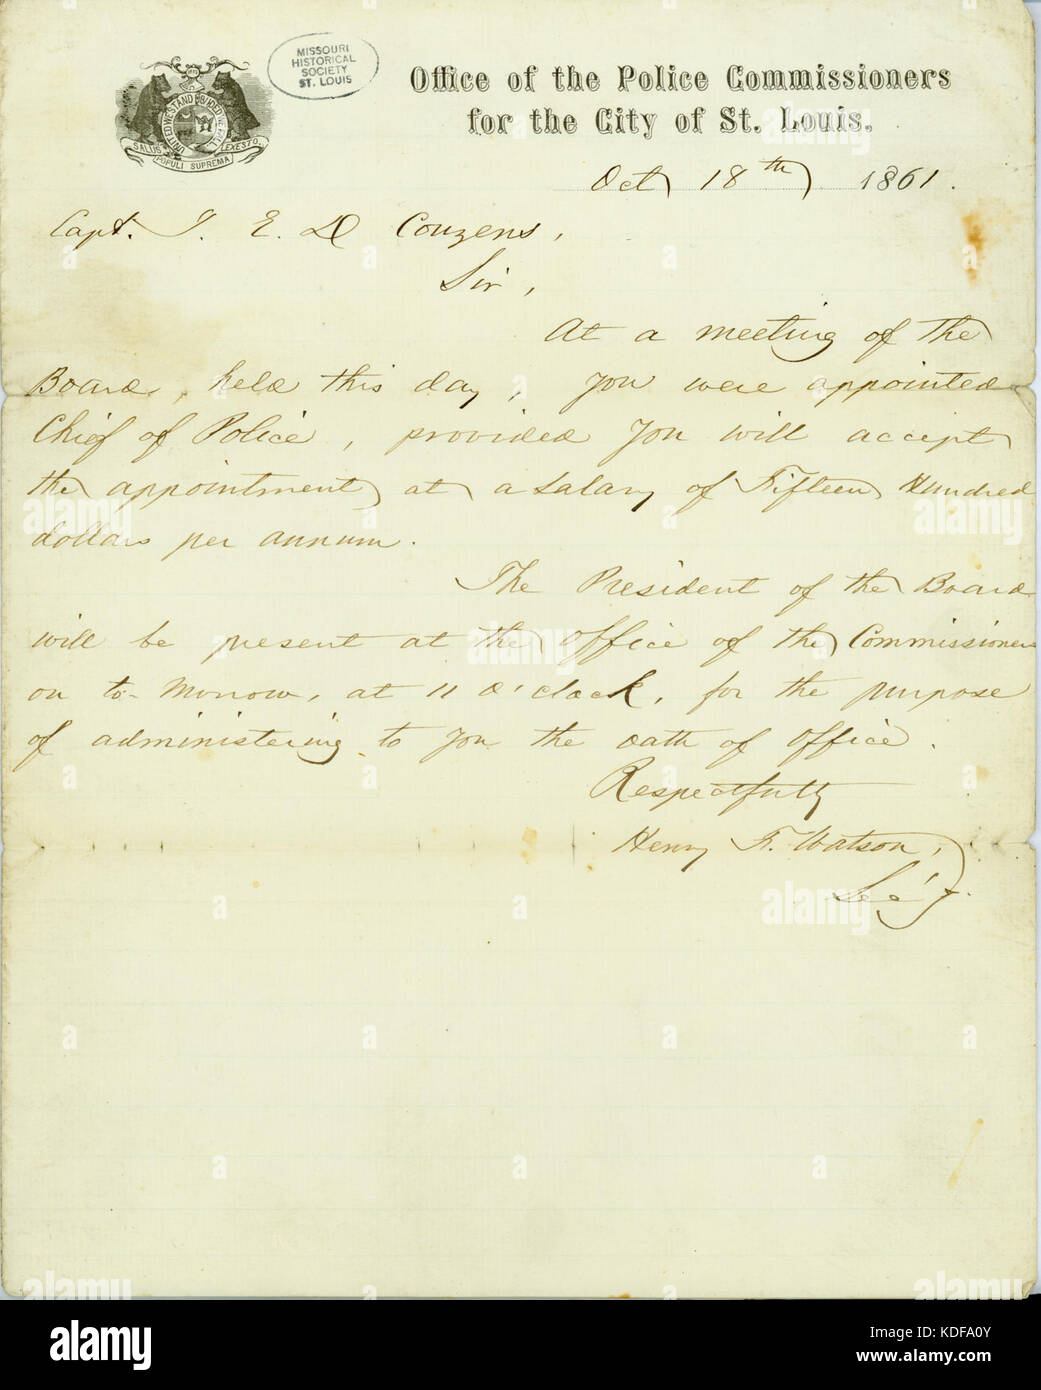 MISSOURI
HISTORICAL
SOCIETY
ST. LOUIS
UNITED WE STAND DIVIDED WE FALL
SALUS POPULI SUPREMA LEX ESTO
Office of the Police Commissioners
for the City of St. Louis.
Oct 18th 1861.
Capt. J. E. D Couzens,
Sir,
At a meeting of the
Board, held this day, you were appointed
Chief of Police, provided you will accept
the appointment at a salary of Fifteen Hundred
dollars per annum.
The President of the Board
will be present at the office of the Commissioners
on to-morrow, at 11 O'clock, for the purpose
of administering to you the oath of office.
Respectfully
Henry F. Watson,
Sec'y.
alamy
Image ID: KDFA0Y
www.alamy.com